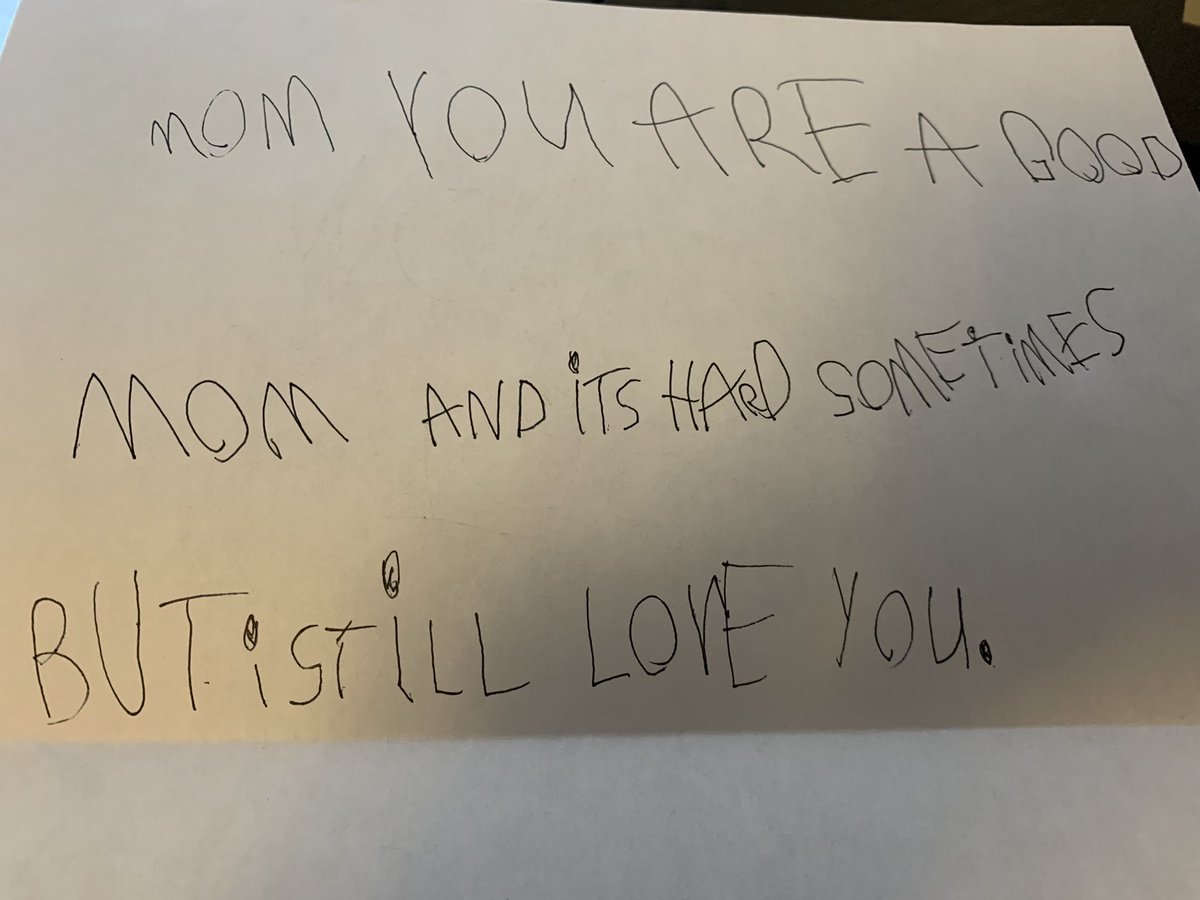 mOM YOU ARE A GOOD
MOM AND iTS HARD SOMETiMES
BUT i STiLL LOVE YOU.